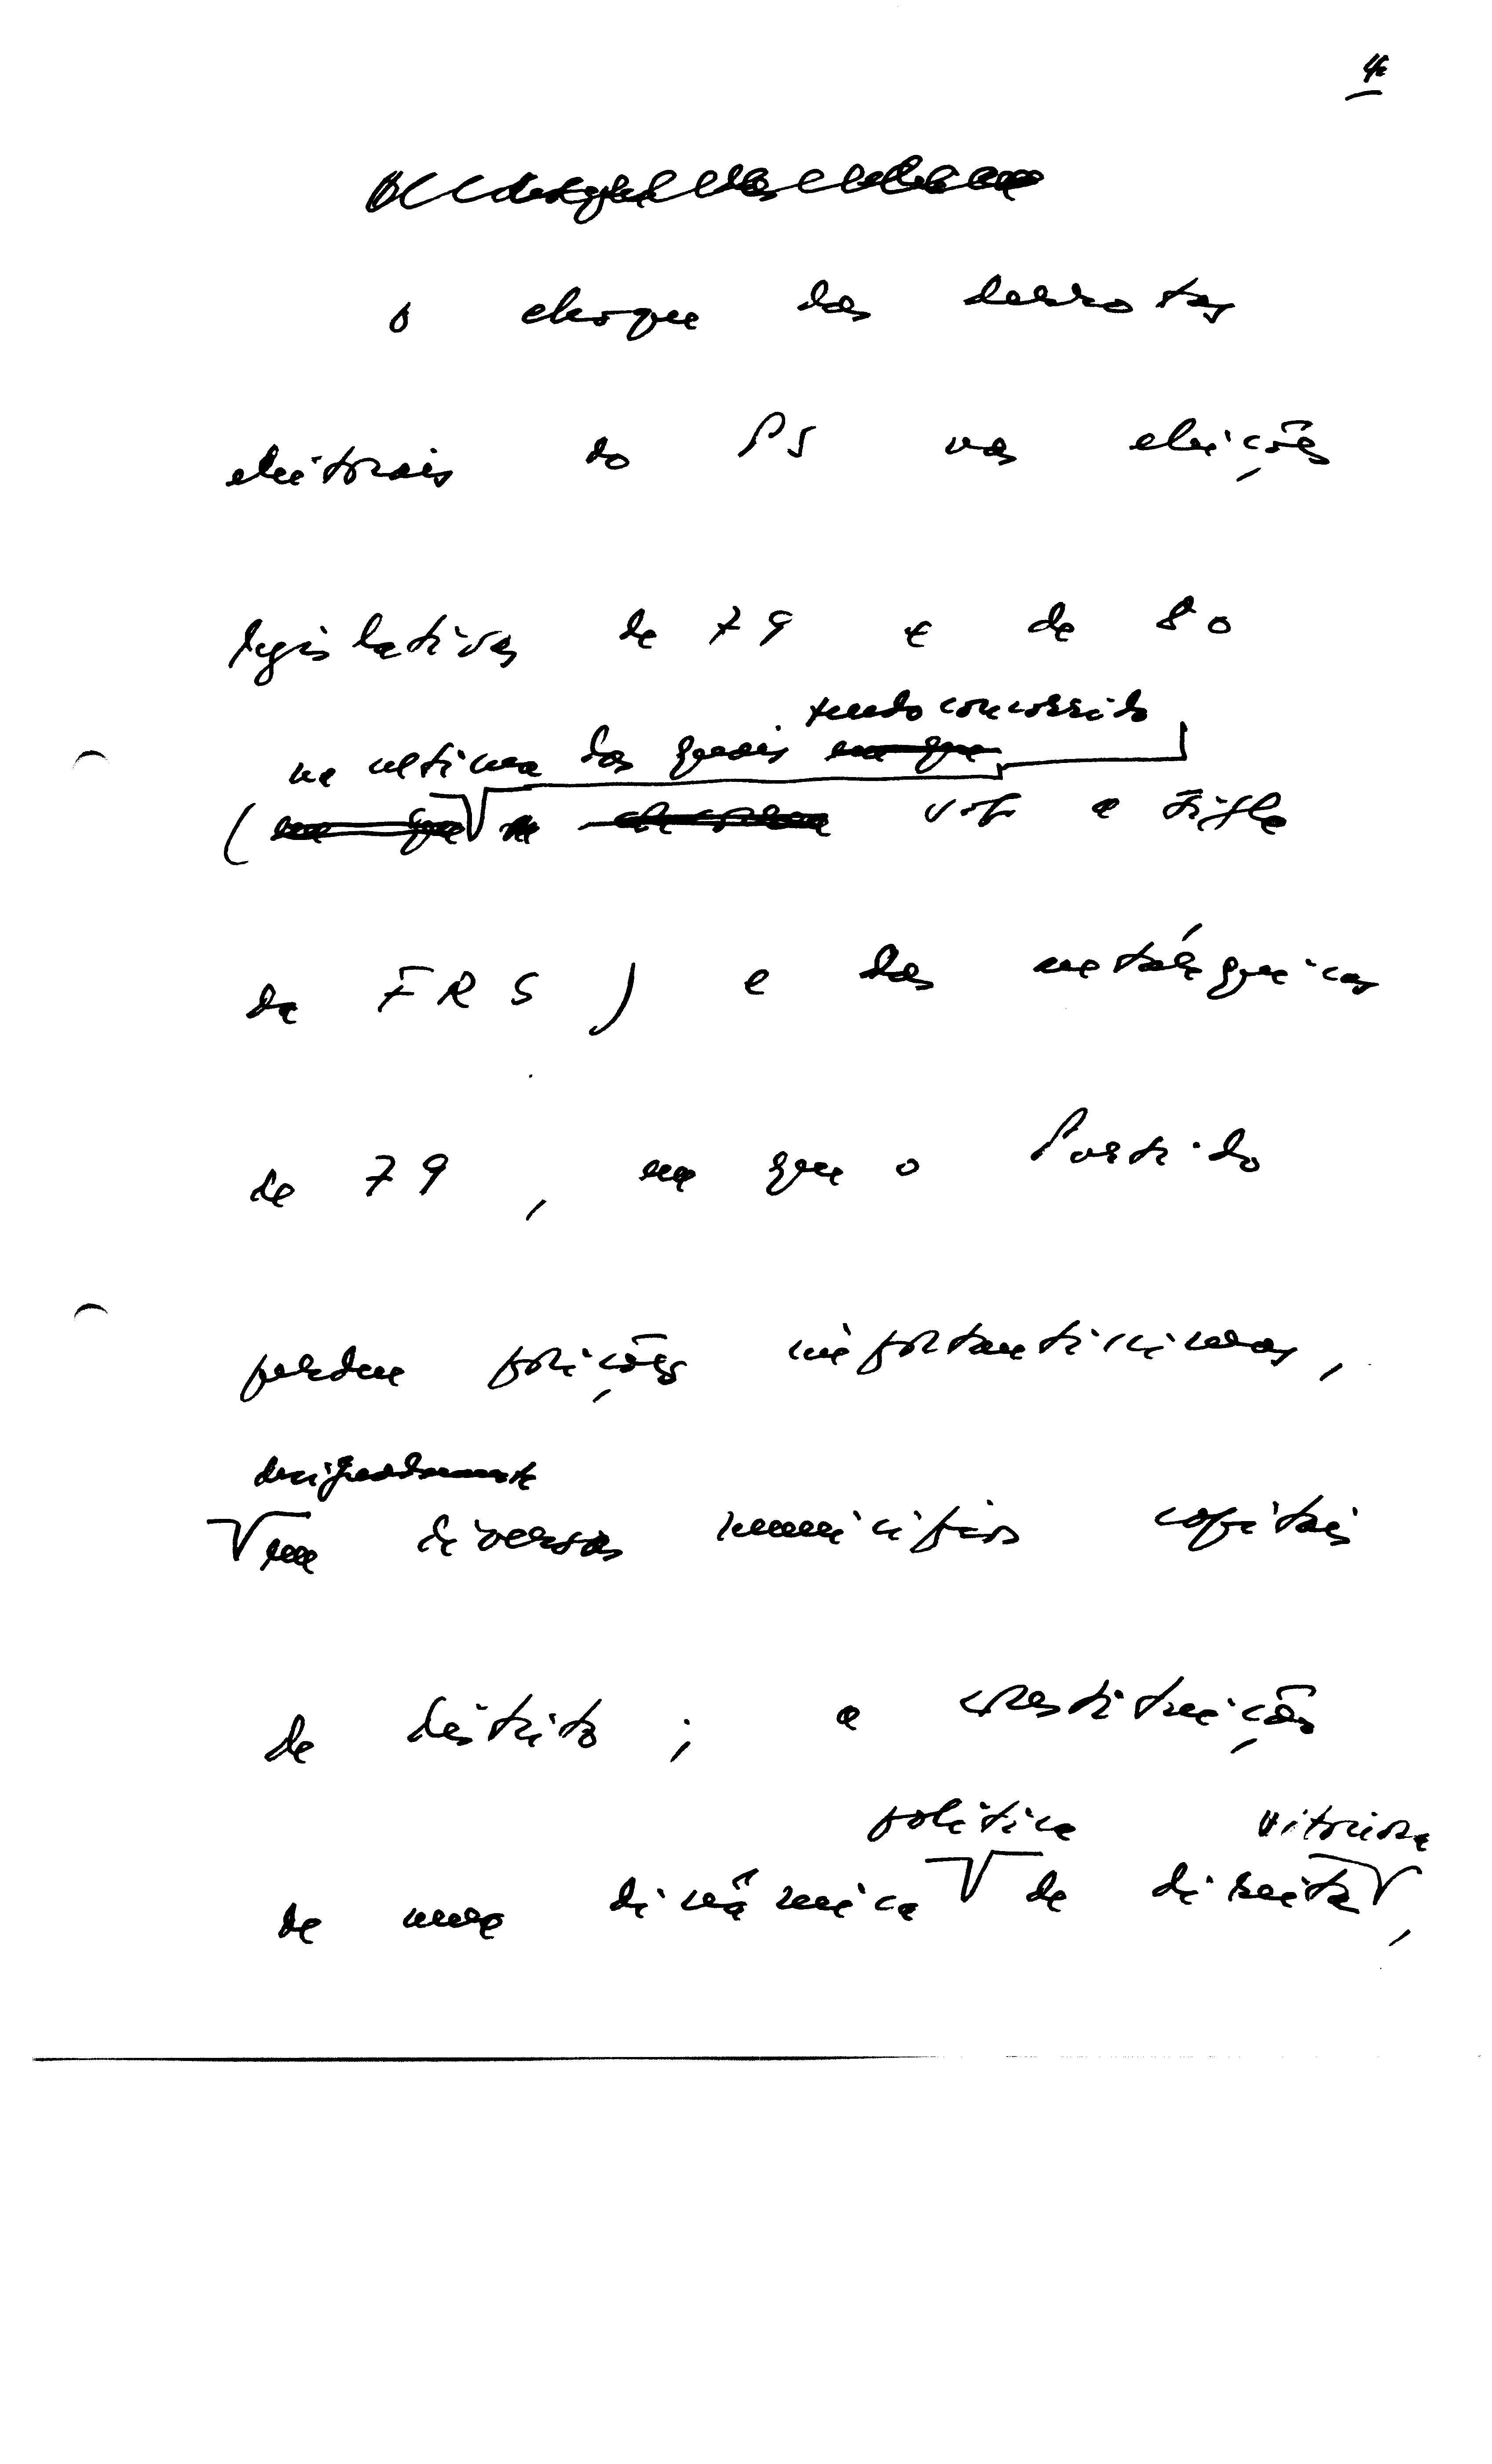 4
O choque das derrotas
eleitorais do PS nas eleições
legislativas de 79 e de 80
tendo concorrido
na ultima das quais em que
( em que sob a sigla
da FRS ) e das autárquicas
de 79 , em que o Partido
perdeu posições importantissimas,
designadamente
em diversos municípios capitais
de distrito ; a constituição
politica vitoriosa
de uma dinâmica de direita ,